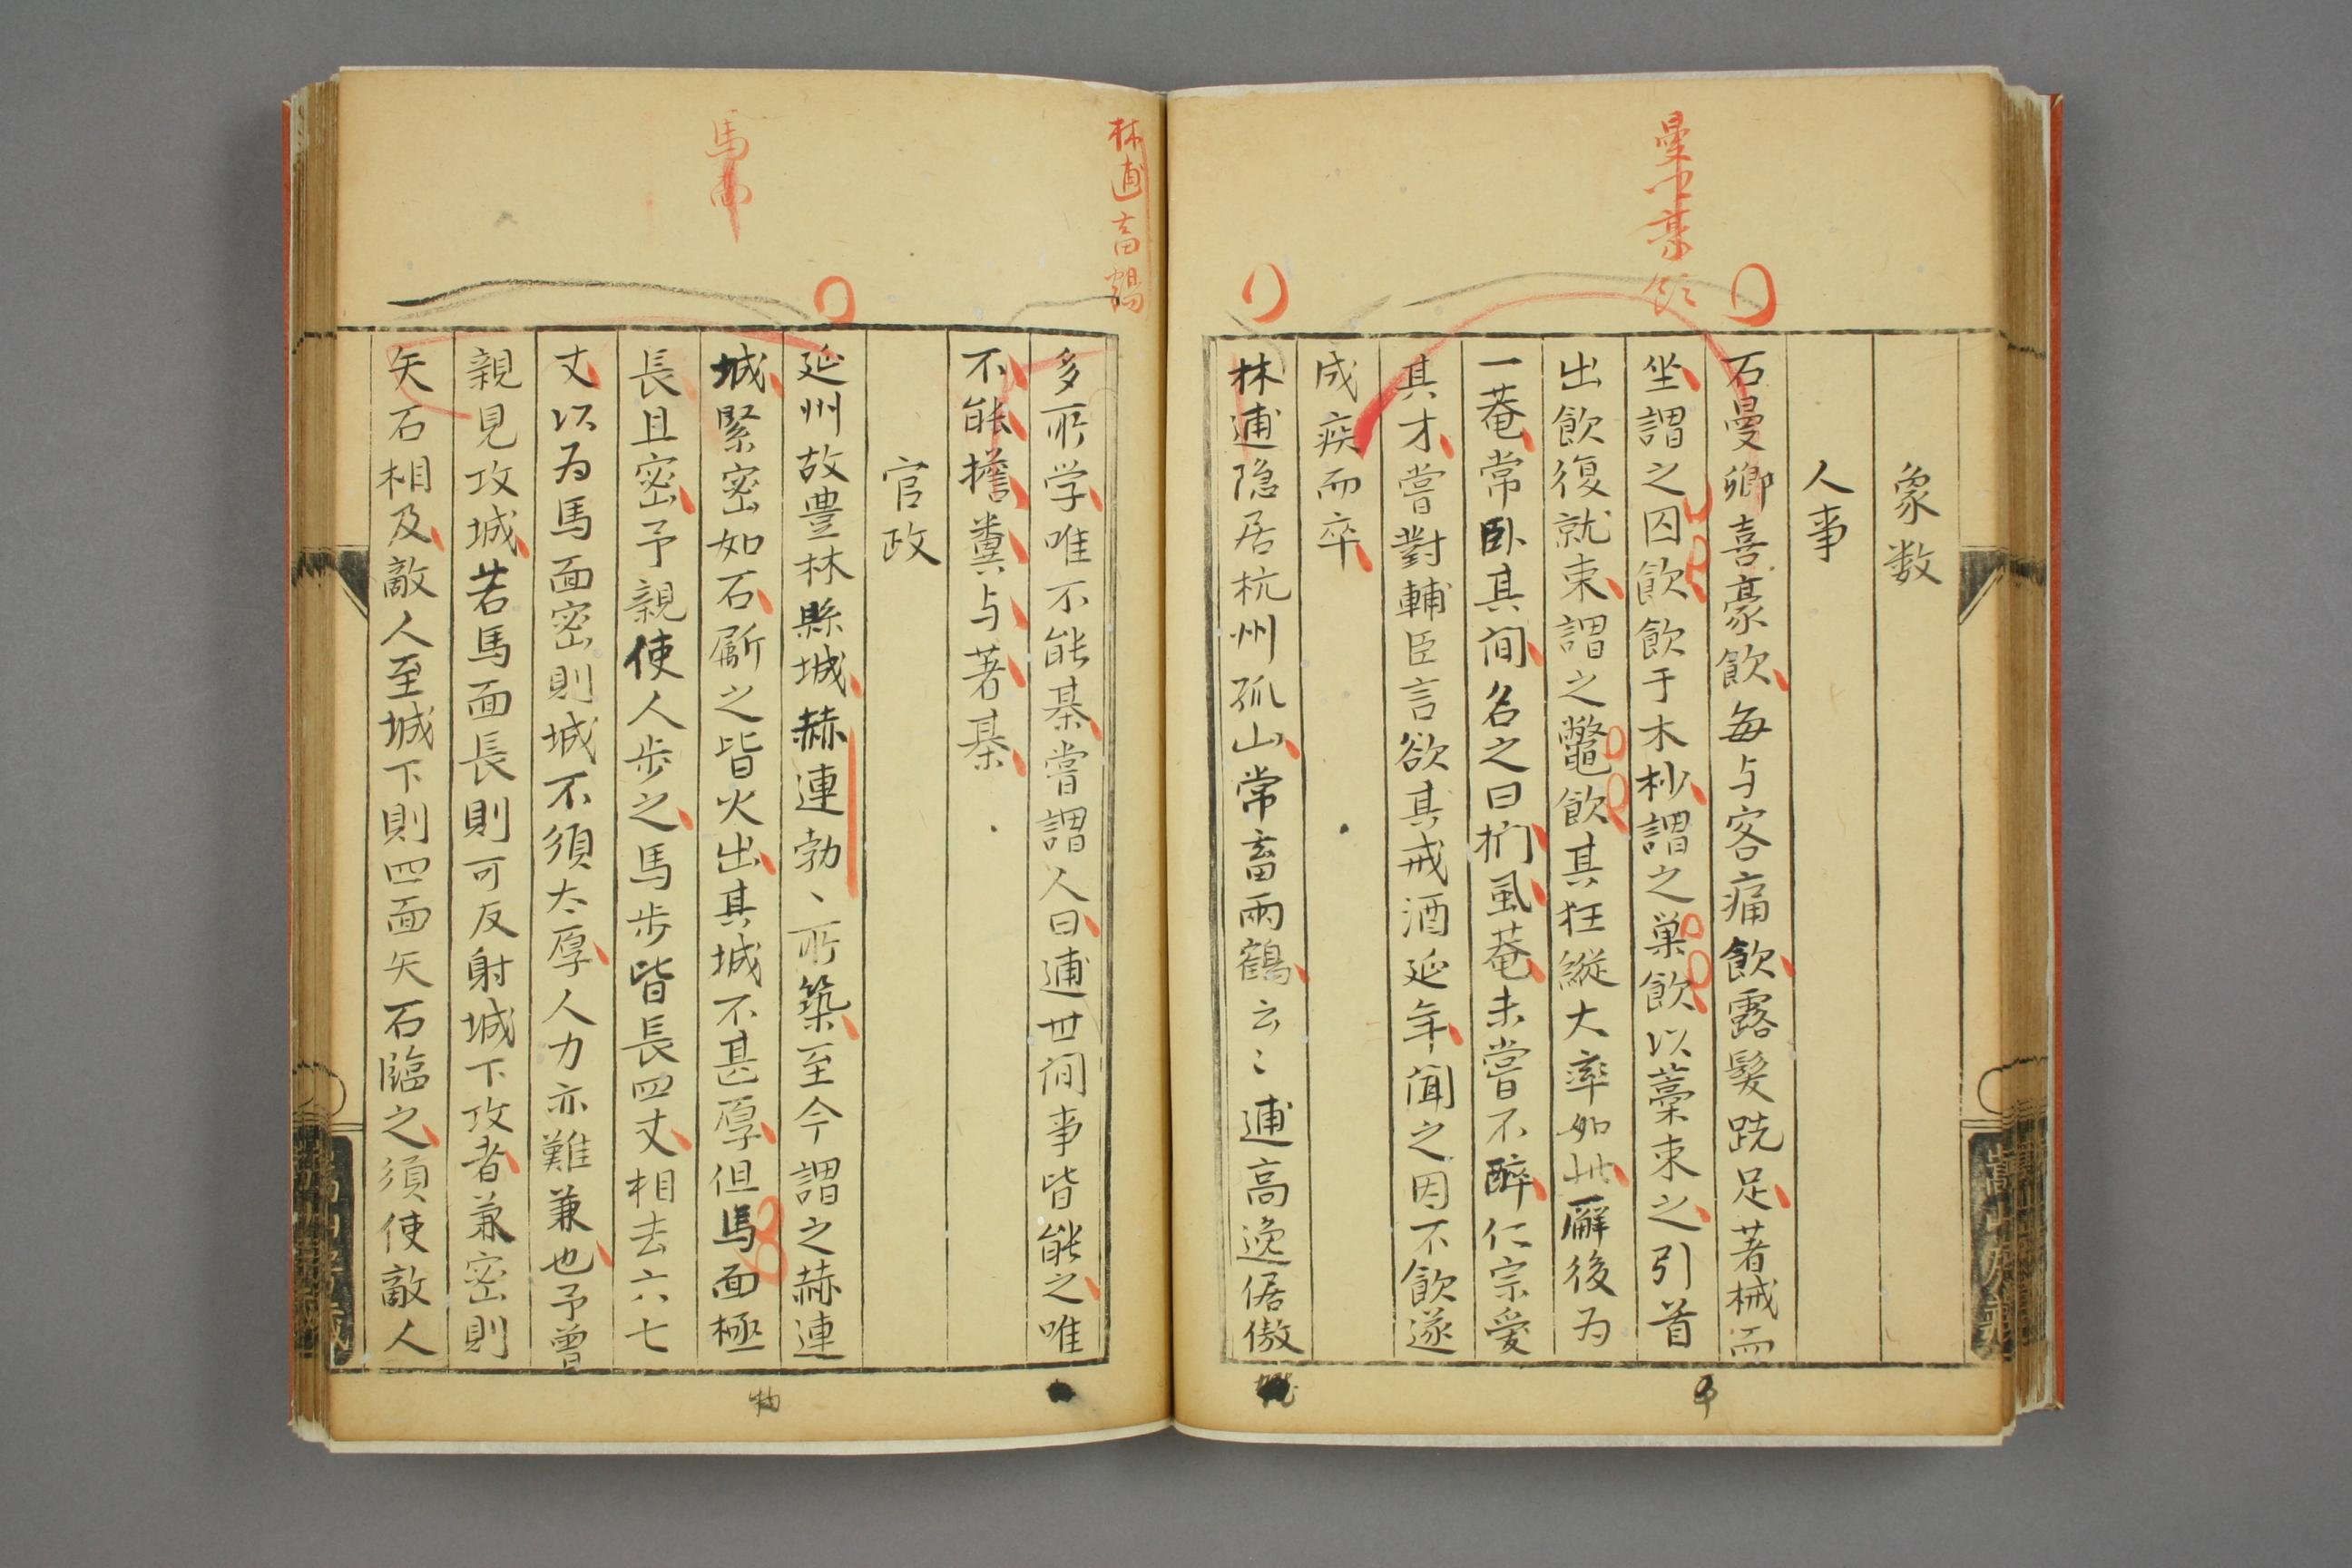 象数
人事
石曼卿喜豪飲每与客痛飲露髪跣足著械而
坐謂之囚飲飲于木杪謂之巢飲以藁束之引首
出飲復就束謂之鼈飲其狂縦大率如此廨後为
一菴常卧其间名之曰捫虱菴未嘗不醉仁宗爱
其才嘗對輔臣言欲其戒酒延年聞之因不飲遂
成疾而卒
林逋隐居杭州孤山常畜兩鶴云〻逋高逸倨傲
多所学唯不能棊嘗謂人曰逋世间事皆能之唯
不能擔糞与著棊
官政
延州故豊林縣城赫連勃〻所築至今謂之赫連
城緊密如石斸之皆火出其城不甚厚但馬面極
長且密予親使人步之馬步皆長四丈相去六七
丈以为馬面密則城不須太厚人力亦難兼也予曾
親見攻城若馬面長則可反射城下攻者兼密則
矢石相及敵人至城下則四面矢石臨之須使敵人
林逋畜鶴
馬面